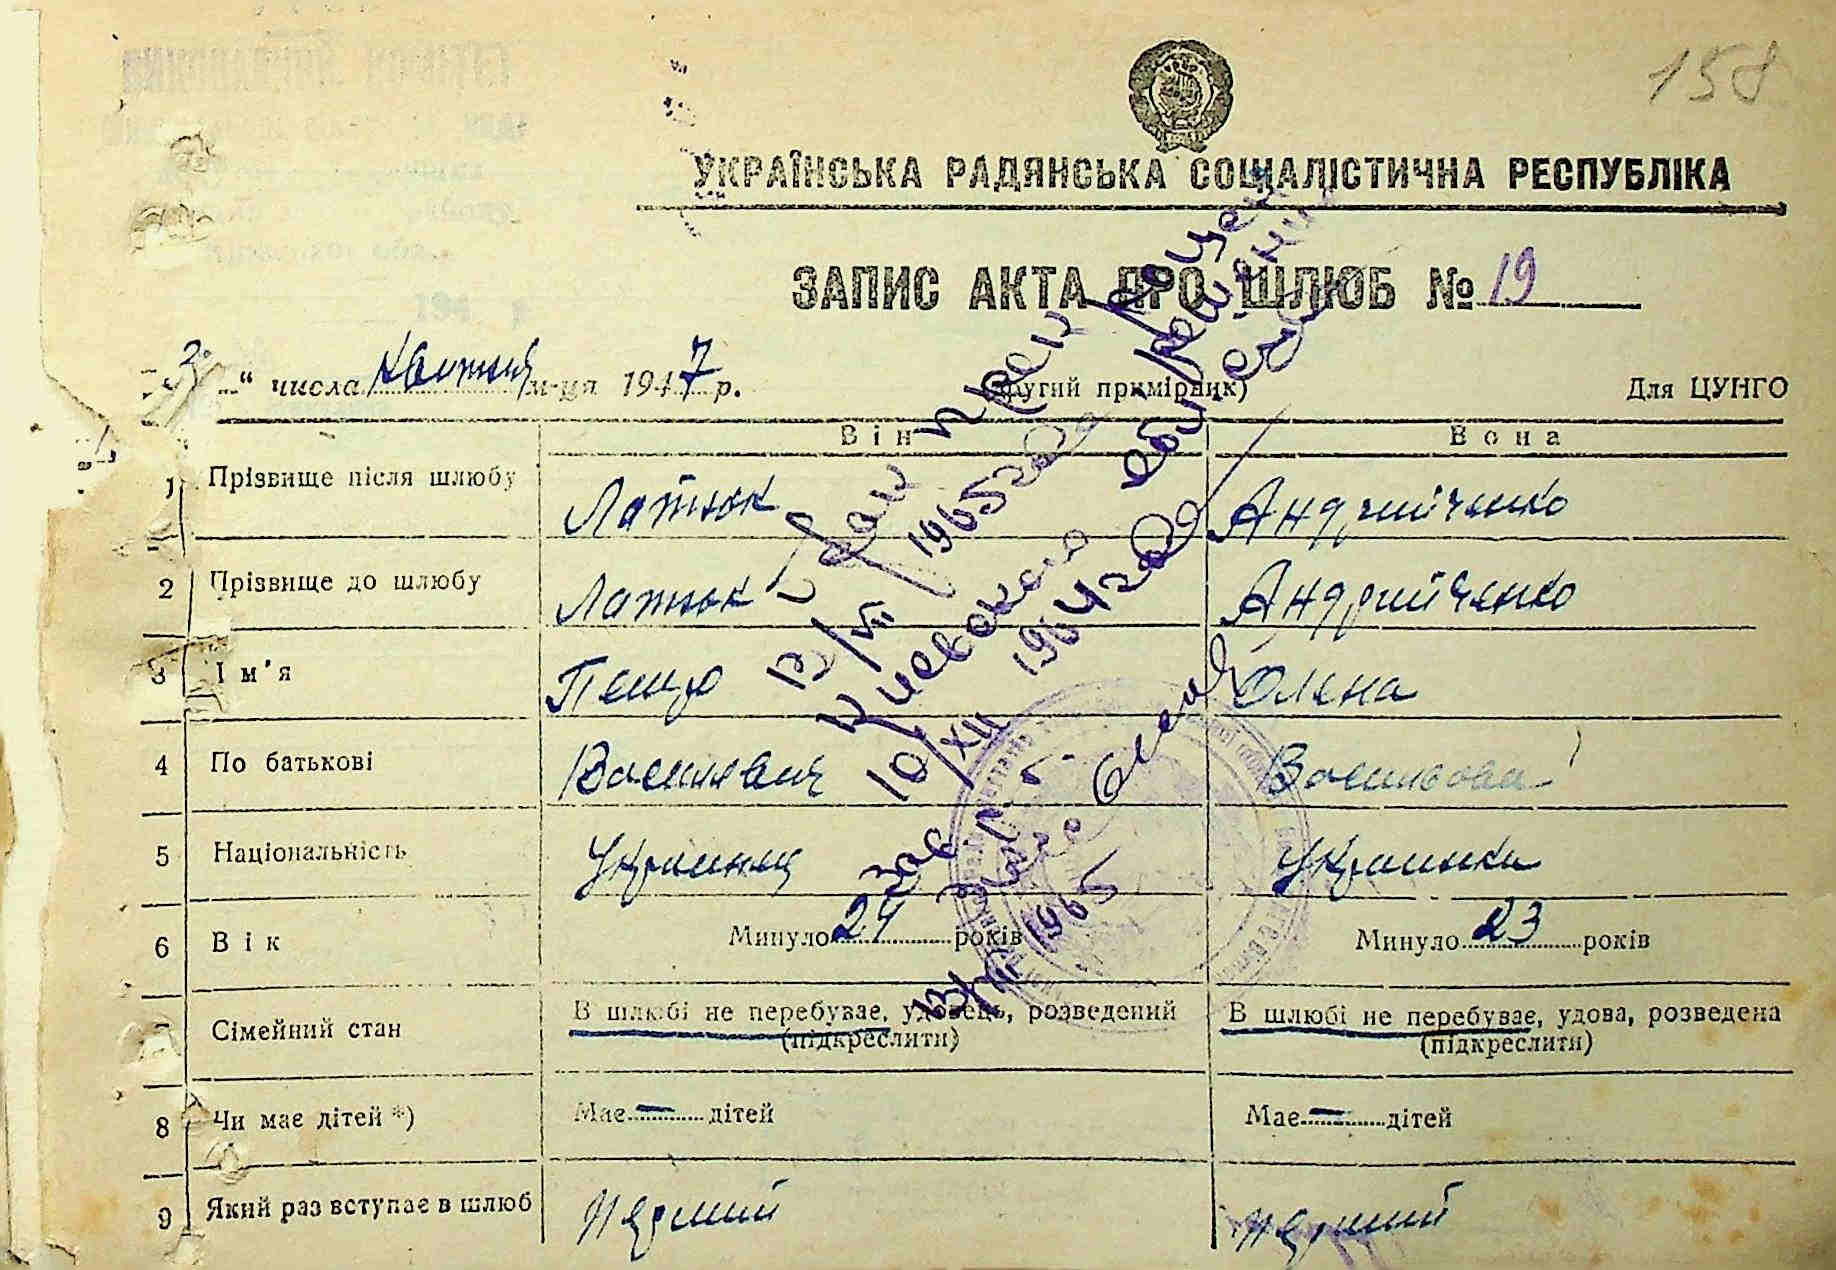 158
УКРАЇНСЬКА РАДЯНСЬКА СОЦІАЛІСТИЧНА РЕСПУБЛІКА
ЗАПИС АКТА ПРО ШЛЮБ № 19
" числа квітня м-ця 1947 р. (другий примірник) Для ЦУНГО
Він Вона
1 Прізвище після шлюбу Латюк Андрийченко
2 Прізвище до шлюбу Латюк Андрийченко
3 Ім'я Петро Олена
4 По батькові Василевич Васильова
5 Національність Українец Украинка
6 Вік Минуло 24 років Минуло 23 років
Сімейний стан В шлюбі не перебуває, удовець, розведений В шлюбі не перебуває, удова, розведена
(підкреслити) (підкреслити)
8 Чи має дітей *) Має — дітей Має — дітей
9 Який раз вступає в шлюб перший перший
Брак
13/VII 1965 года
Киевского
10/XII 1964 года
1965